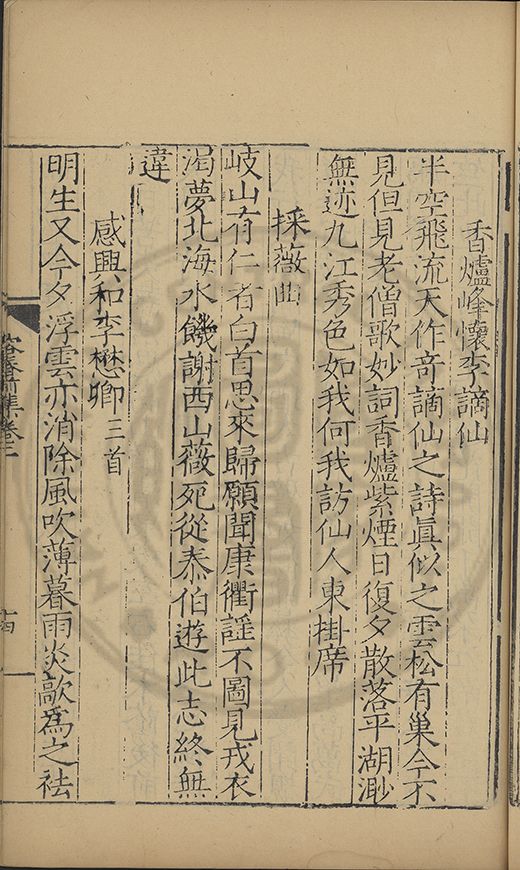 香爐峰懷李謫仙
半空飛流天作奇謫仙之詩眞似之雲松有巢今不
見但見老僧歌妙詞香爐紫煙日復夕散落平湖渺
無迹九江秀色如我何我訪仙人東掛席
採薇曲
岐山有仁者白首思來歸願聞康衢謡不圖見戎衣
渴夢北海水饑謝西山薇死從泰伯遊此志終無
違
感興和李懋卿三首
明生又今夕浮雲亦消除風吹薄暮雨炎歊為之祛